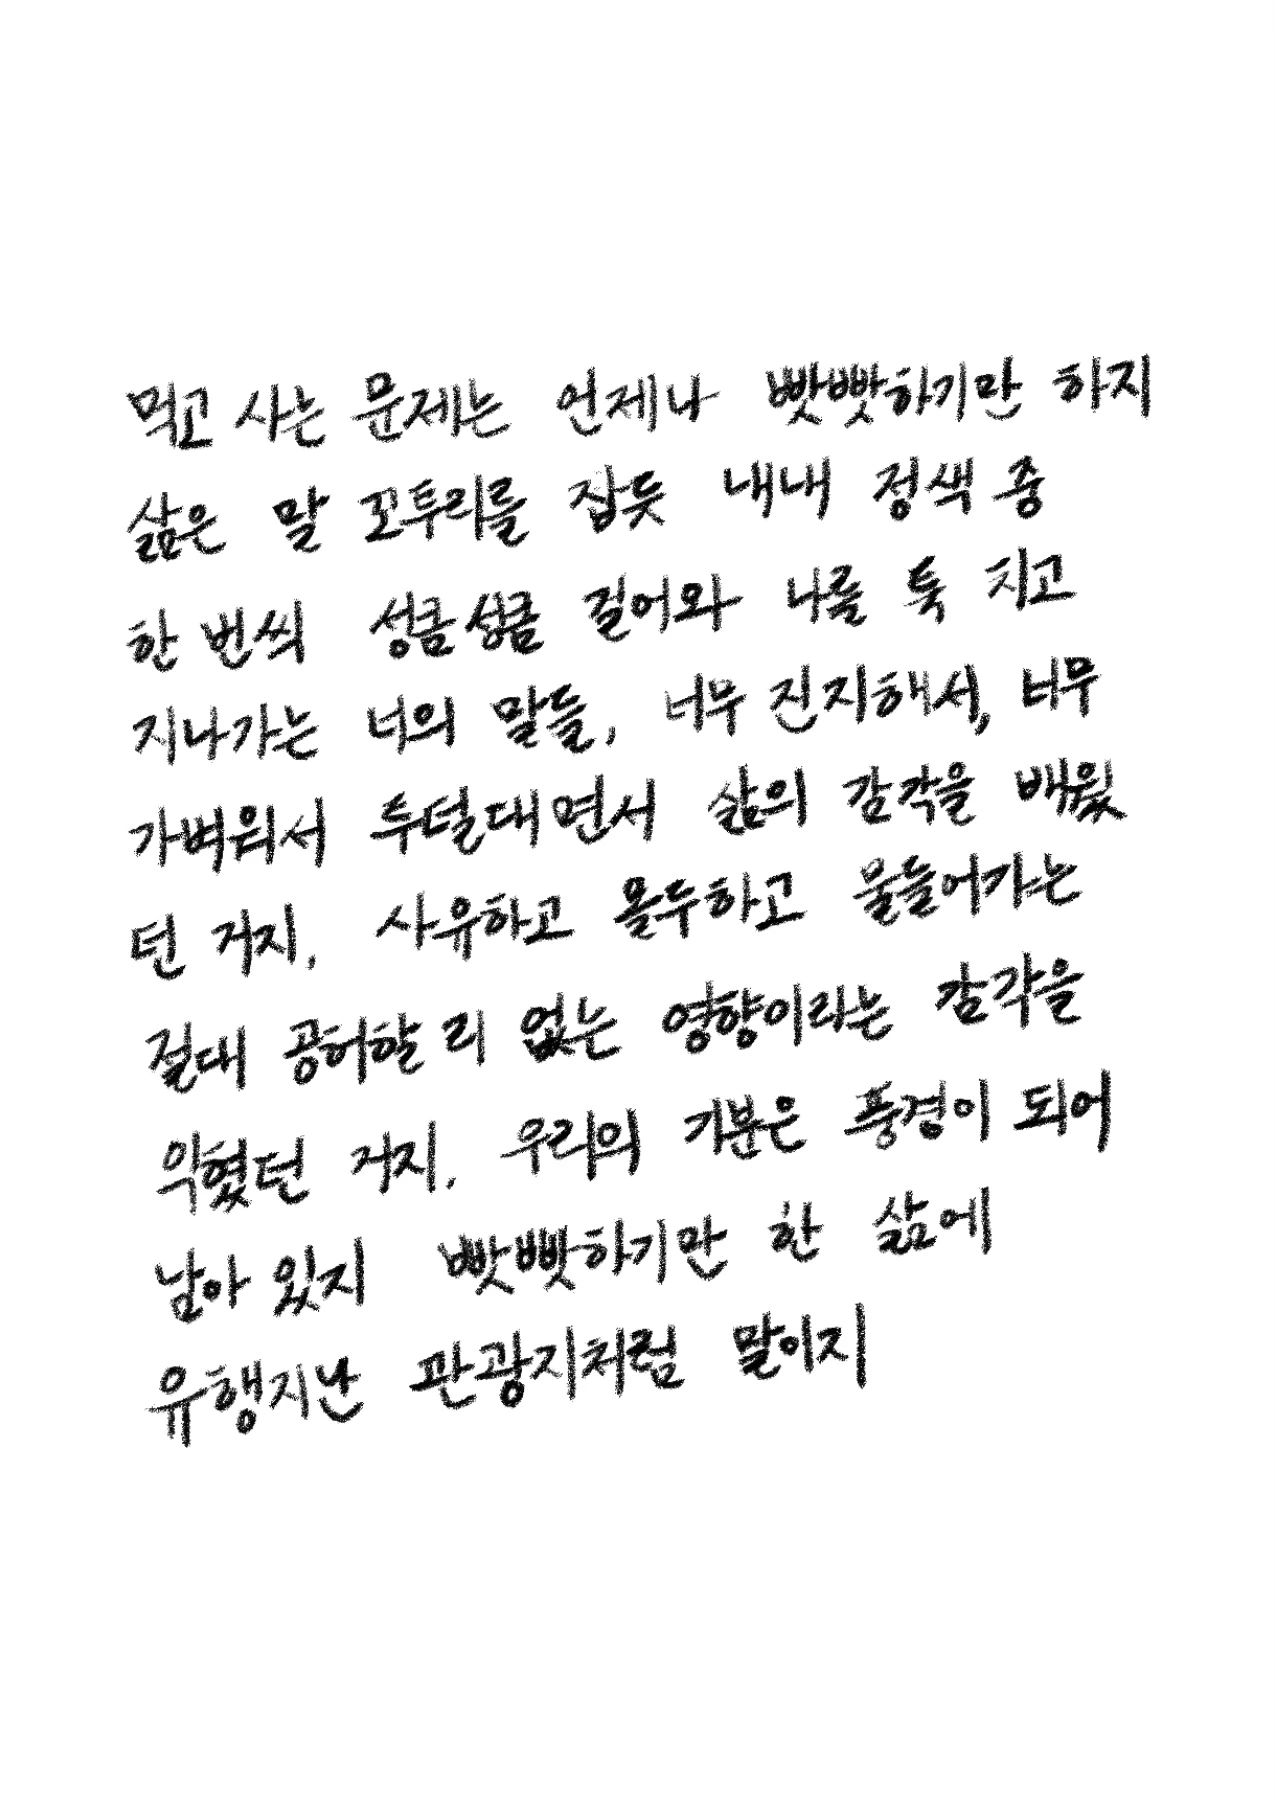 먹고 사는 문제는 언제나 빳빳하기만 하지
삶은 말 꼬투리를 잡듯 내내 정색 중
한 번씩 성큼성큼 걸어와 나를 툭 치고
지나가는 너의 말들, 너무 진지해서, 너무
가벼워서 투덜대면서 삶의 감각을 배웠
던 거지. 사유하고 몰두하고 물들어가는
절대 공허할 리 없는 영향이라는 감각을
익혔던 거지. 우리의 기분은 풍경이 되어
남아 있지 빳빳하기만 한 삶에
유행지난 관광지처럼 말이지